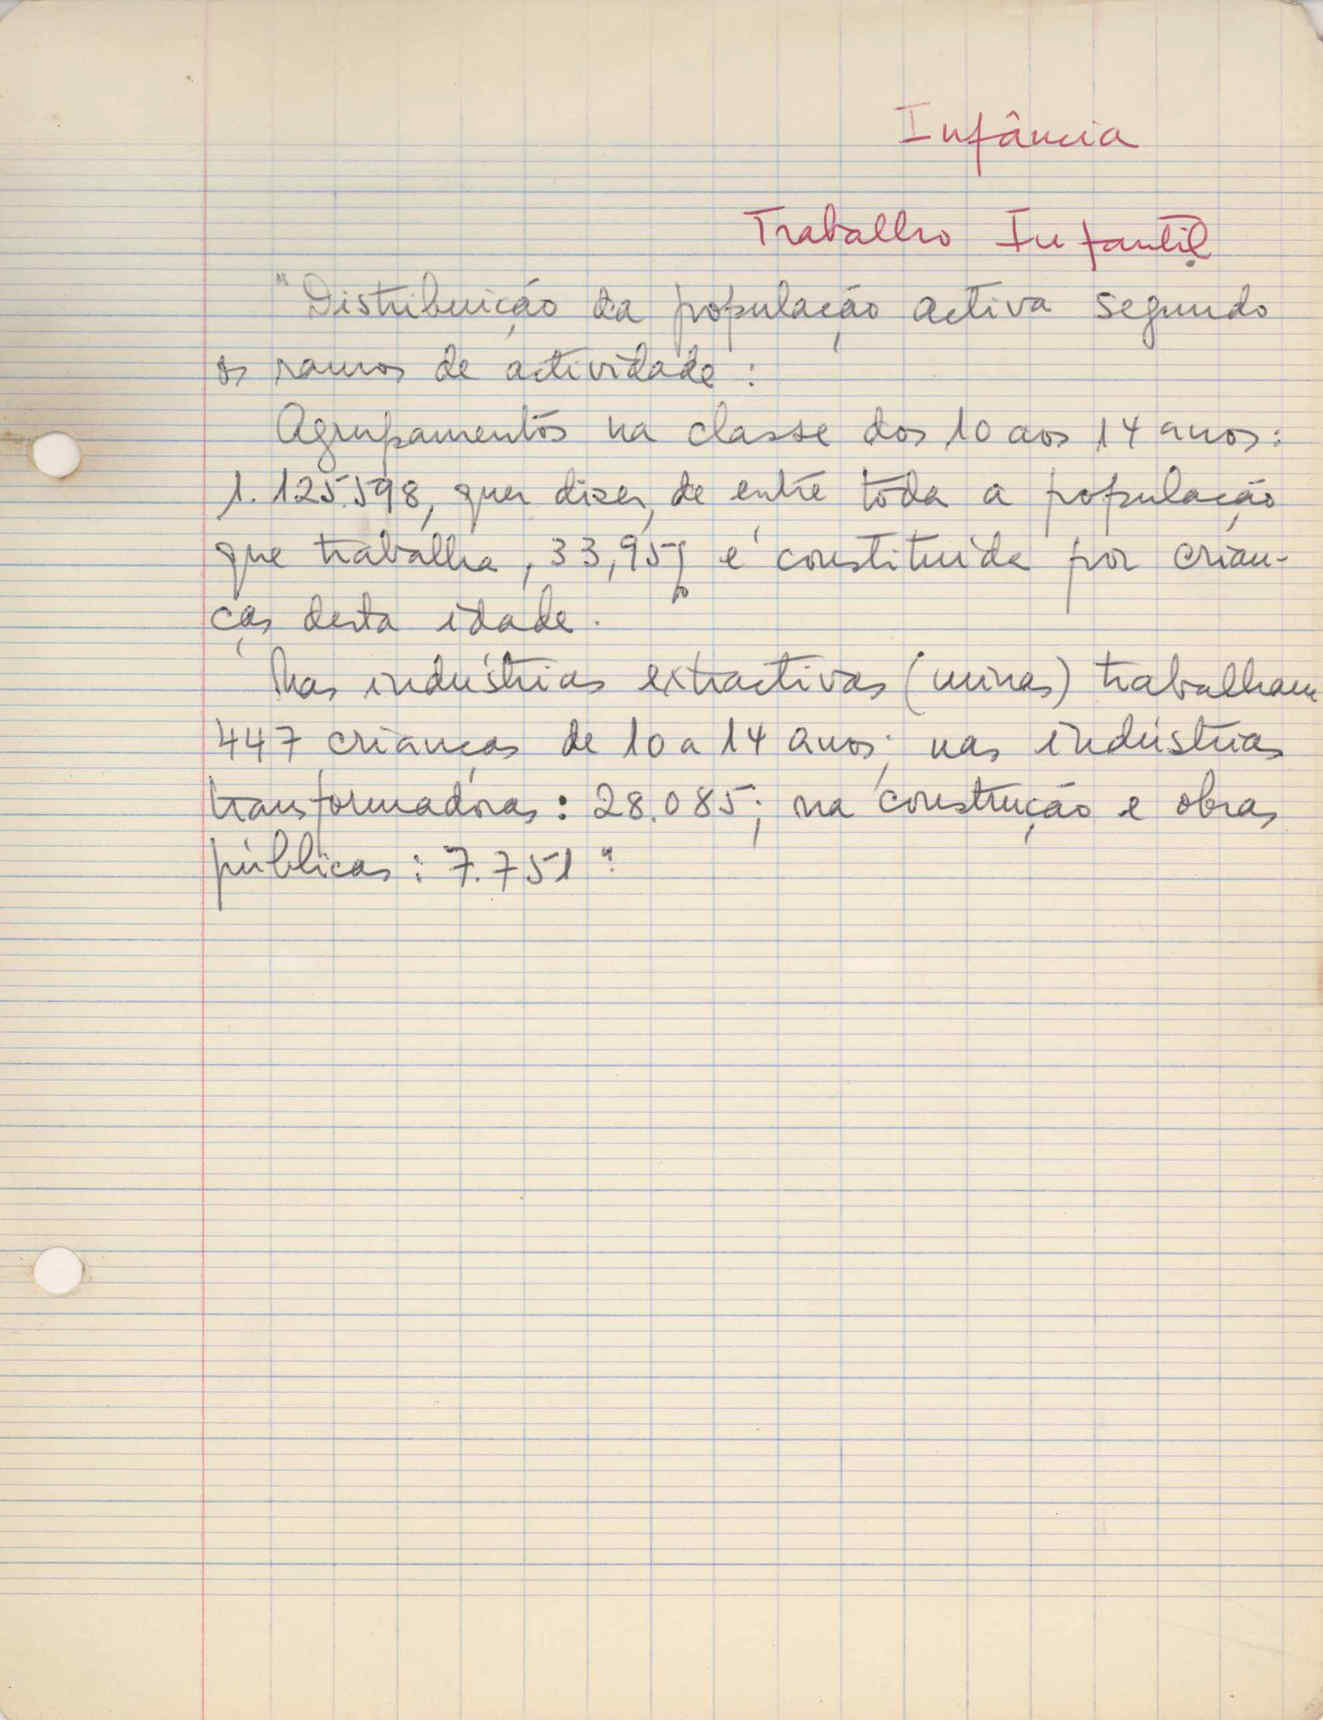 Infância
Trabalho Infantil
"Distribuição da população activa segundo
os ramos de actividade:
Agrupamentos na classe dos 10 aos 14 anos:
1.125.598, quer dizer, de entre toda a população
que trabalha, 33,95% é constituída por crian-
ças desta idade.
Nas indústrias extractivas (minas) trabalham
447 crianças de 10 a 14 anos; nas indústrias
transformadoras: 28.085; na construção e obras
públicas: 7.751".